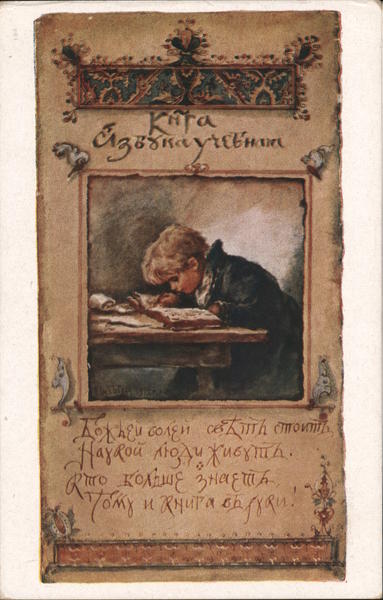 Кнiга
Азбука учебная
Божьей волей свѣтъ стоитъ,
Наукой люди живутъ.
Кто больше знаетъ
Тому и книга въ руки!